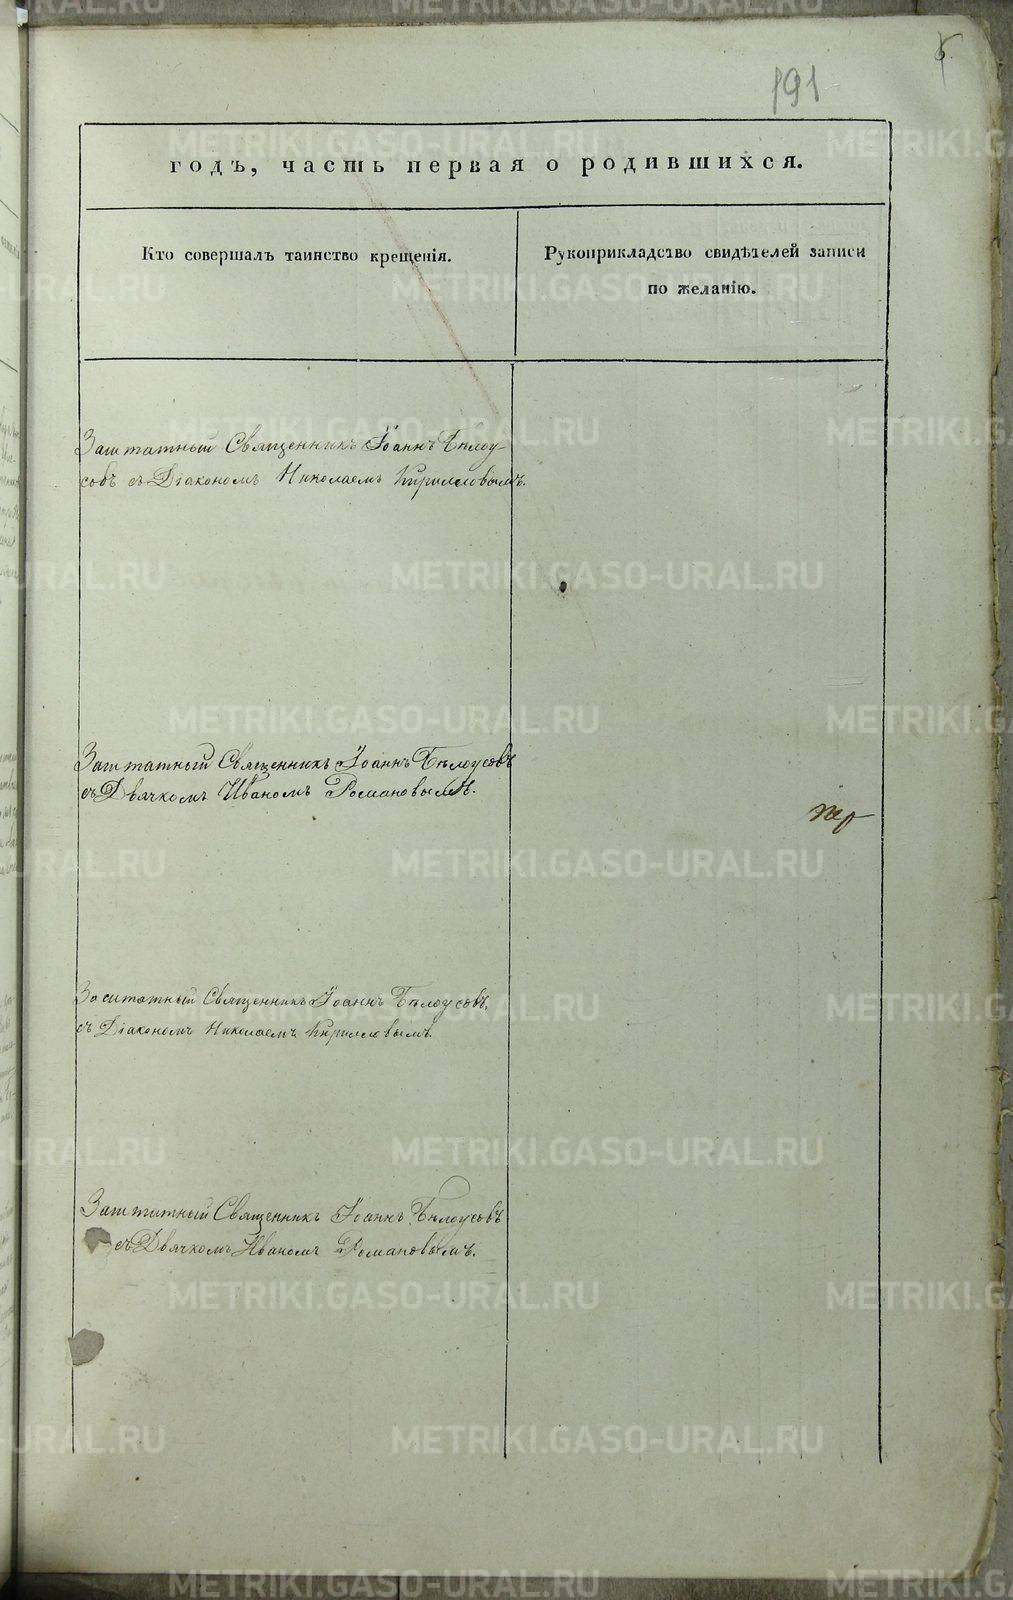 191
годъ, часть первая о родившихся.
Кто совершалъ таинство крещенія.
Рукоприкладство свидѣтелей записи
по желанію.
Заштатный Священникъ Іоаннъ Бѣлоу-
совъ съ Діакономъ Николаемъ Кирилловымъ.
Заштатный Священникъ Іоаннъ Бѣлоусовъ
съ Дьячкомъ Иваномъ Романовымъ.
Заштатный Священникъ Іоаннъ Бѣлоусовъ,
съ Діакономъ Николаемъ Кирилловымъ.
Заштатный Священникъ Іоаннъ Бѣлоусовъ
съ Дьячкомъ Иваномъ Романовымъ.
METRIKI.GASO-URAL.RU